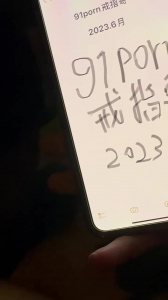 91porn戒指哥
2023.6月
91porn
戒指
2023